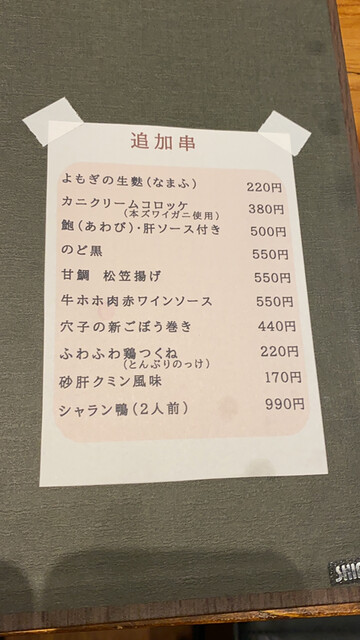 追加串
よもぎの生麩(なまふ) 220円
カニクリームコロッケ 380円
(本ズワイガニ使用)
鮑(あわび)・肝ソース付き 500円
のど黒 550円
甘鯛 松笠揚げ 550円
牛ホホ肉赤ワインソース 550円
穴子の新ごぼう巻き 440円
ふわふわ鶏つくね 220円
(とんぶりのっけ)
砂肝クミン風味 170円
シャラン鴨(2人前) 990円